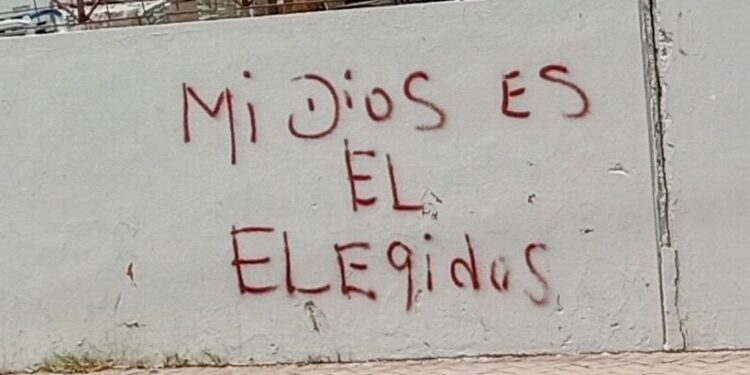 Mi Dios ES
EL
ELEgidos